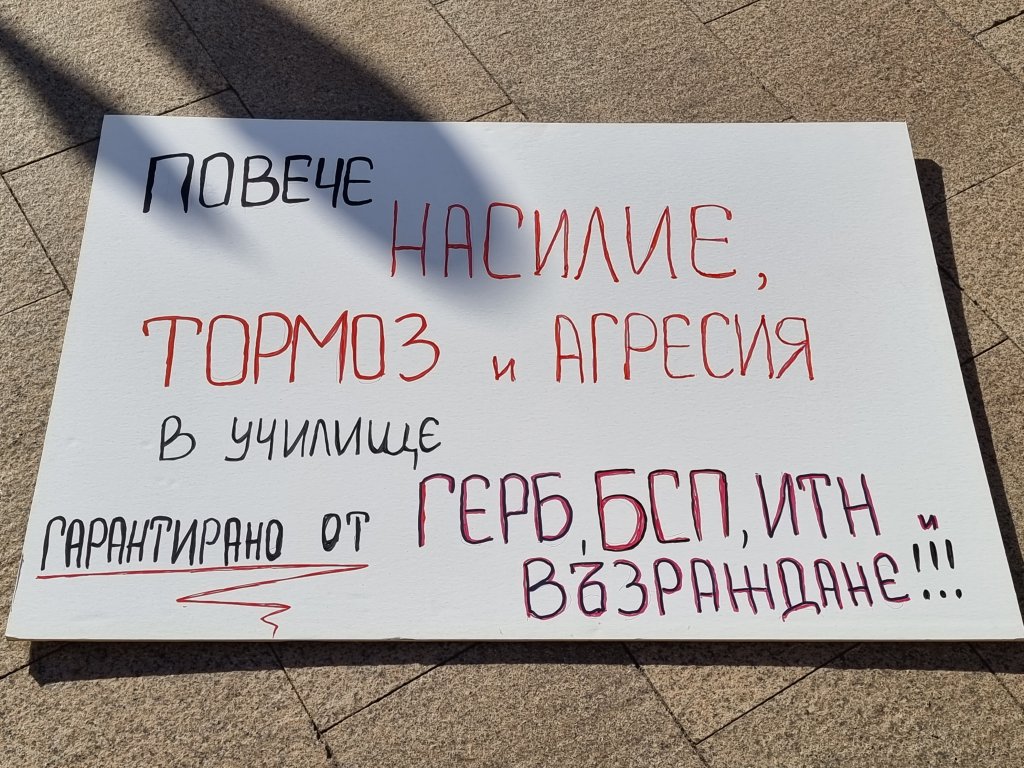 ПОВЕЧЕ
НАСИЛИЕ,
ТОРМОЗ и АГРЕСИЯ
В УЧИЛИЩЕ
ГАРАНТИРАНО ОТ ГЕРБ, БСП, ИТН и
ВЪЗРАЖДАНЕ!!!